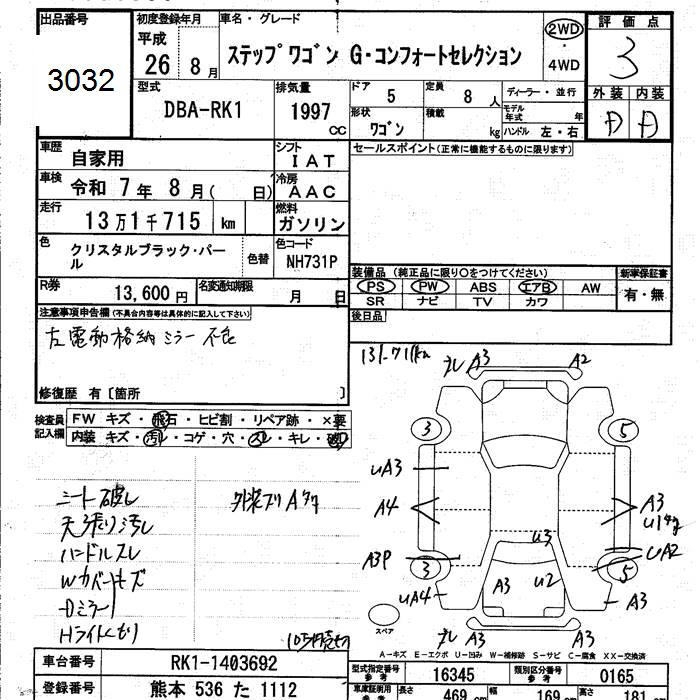 出品番号
3032
初度登録年月
平成
26 8月
車名・グレード
ステップワゴン G・コンフォートセレクション
2WD
4WD
評価点
3
外装 内装
D D
型式
DBA-RK1
排気量
1997
CC
ドア 5
定員 8人
ディーラー・並行
形状 ワゴン
積載 kg
モデル年式 年
ハンドル 左・右
車歴 自家用
シフト IAT
車検 令和 7年 8月( 日)
冷房 AAC
走行 13万1千715 km
燃料 ガソリン
色 クリスタルブラック・パール
色替
色コード NH731P
R券 13,600円
名変通知期限 月 日
セールスポイント(正常に機能するものに限ります)
装備品 (純正品に限り○をつけてください)
新車保証書
PS PW ABS エアB AW
SR ナビ TV カワ
有・無
後日品
注意事項申告欄(不具合内容等は具体的に記入して下さい)
左電動格納ミラー不良
修復歴 有〔箇所 〕
検査員記入欄
FW キズ・飛石・ヒビ割・リペア跡・×要
内装 キズ・汚レ・コゲ・穴・スレ・キレ・破レ
シート破レ
天張り汚レ
ハンドルスレ
Wカバーキズ
Dミラー
Hライトくもり
A3
A2
3
5
UA3
A4
A3
UA2
A3P
3
5
U3
A3
U2
UA4
A3
A3
A3
スペア
A-キズ E-エクボ U-凹み W-補修跡 S-サビ C-腐食 XX-交換済
車台番号 RK1-1403692
登録番号 熊本 536 た 1112
型式指定番号 参考 16345
類別区分番号 参考 0165
車庫証明用 参考
長さ 469 cm
幅 169 cm
高さ 181 cm